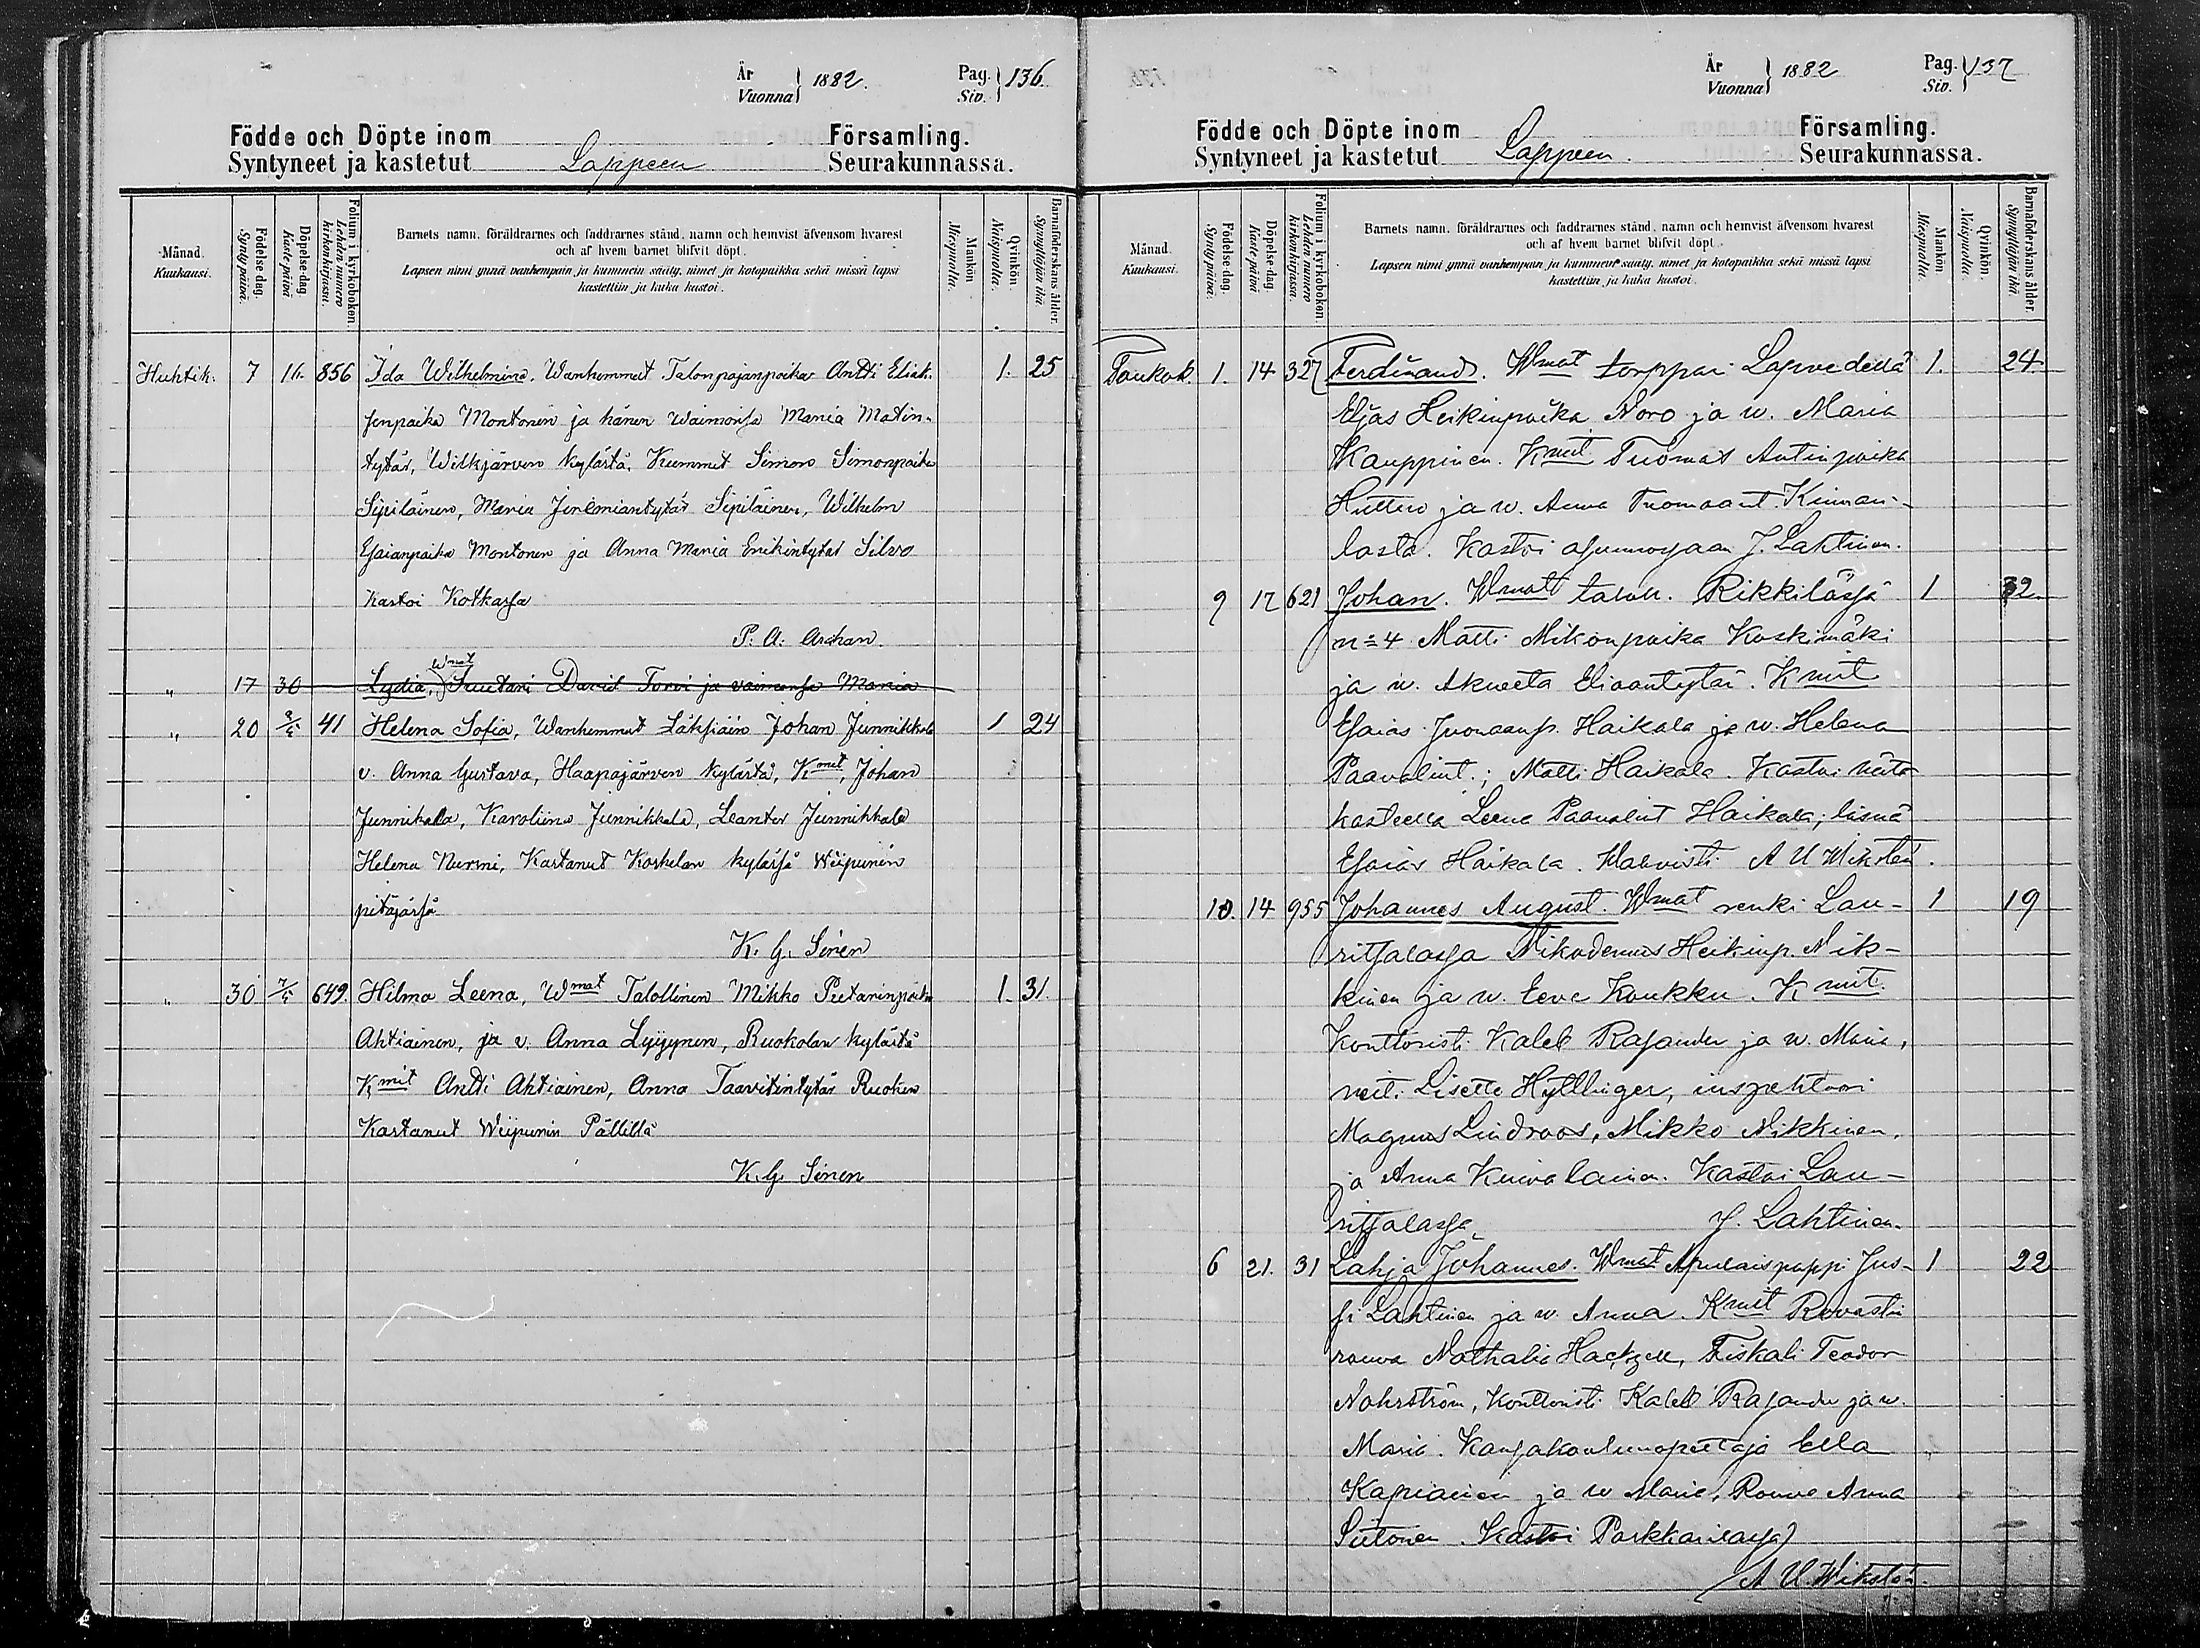 År
Vuonna } 1882.
Pag.
Siv. } 136.
Födde och Döpte inom Församling.
Syntyneet ja kastetut Lappeen Seurakunnassa.
Månad.
Kuukausi.
Födelse-dag.
Synty päivä.
Döpelse-dag
Kaste-päivä
Folium i kyrkoboken.
Lehden numero
kirkonkirjassa.
Barnets namn, föräldrarnes och faddrarnes stånd, namn och hemvist äfvensom hvarest
och af hvem barnet blifvit döpt.
Lapsen nimi ynnä vanhempain ja kummein sääty, nimet ja kotopaikka sekä missä lapsi
kastettiin ja kuka kastoi.
Mankön
Miespuolia.
Qvinkön
Naispuolia.
Barnaföderskans ålder.
Synnyttäjän ikä.
Huhtik. 7 16. 856 Ida Wilhelmina. Wanhemmat Talonpojanpoika Antti Eliak. 1. 25
senpoika Montonen ja hänen waimonsa Maria Matin-
tytär, Wilkjärven kylästä. Kummit Simon Simonpoika
Sipiläinen, Maria Jeremiantytär Sipiläinen, Wilhelm
Esaianpoika Montonen ja Anna Maria Erikintytär Silvo
Kastoi Kotkassa
P. A. Arokan
" 17 30 Lydia, Wmat Suutari David Torvi ja vaimonsa Maria
" 20 2/5 41 Helena Sofia, Wanhemmat Läksiäin Johan Junnikkala 1 24
v. Anna Gustava, Haapajärven kylästä, Kmit, Johan
Junnikala, Karoliina Junnikkala, Leanter Junnikkala
Helena Nurmi, Kastanut Koskelan kylässä Wiipurin
pitäjässä
K. G. Sirén
" 30 7/5 649. Hilma Leena, Wmat Talollinen Mikko Pietarinpoika 1. 31
Ahtiainen, ja v. Anna Lyijynen, Ruokolan kylästä
Kmit Antti Ahtiainen, Anna Taavitintytär Ruohen
Kastanut Wiipurin Pällillä
K. G. Sirén
År
Vuonna } 1882
Pag.
Siv. } 137
Födde och Döpte inom Församling.
Syntyneet ja kastetut Lappeen. Seurakunnassa.
Månad.
Kuukausi.
Födelse-dag.
Synty päivä.
Döpelse-dag.
Kaste-päivä
Folium i kyrkoboken.
Lehden numero
kirkonkirjassa.
Barnets namn, föräldrarnes och faddrarnes stånd, namn och hemvist äfvensom hvarest
och af hvem barnet blifvit döpt.
Lapsen nimi ynnä vanhempain ja kummein sääty, nimet ja kotopaikka sekä missä lapsi
kastettiin ja kuka kastoi.
Mankön
Miespuolia.
Qvinkön
Naispuolia.
Barnaföderskans ålder.
Synnyttäjän ikä.
Toukok. 1. 14 327 Ferdinand. Wmat torppari Lapvedellä 1. 24
Eljas Heikinpoika Noro ja w. Maria
Kauppinen. Kmit Tuomas Antinpoika
Huttu ja w. Anna Tuomaant. Kiiman-
lasta. Kastoi asunnossaan J. Lahtinen.
9 17 621 Johan. Wmat talon. Rikkilässä 1 32
n:o 4 Matti Mikonpoika Koskimäki
ja w. Akneeta Eliaantytär. Kmit
Esaias Juonaanp. Haikala ja w. Helena
Paavalint.; Matti Haikala. Kastoi hätä
kasteella Leena Paavalint Haikala; läsnä
Esaias Haikala. Wahvisti A U Wikstén.
10. 14 955 Johannes August. Wmat renki Lau- 1 19
ritsalassa Nikodemus Heikinp. Nik-
kinen ja w. Eeva Koukku. Kmit.
Konttoristi Kaleb Rasander ja w. Maria,
neit. Lisette Hyttlinger, inspehtoori
Magnus Lindroos, Mikko Nikkinen,
ja Anna Kuivalainen. Kastoi Lau-
ritsalassa J. Lahtinen.
6 21. 31 Lahja Johannes. Wmat Apulaispappi Jus- 1 22
si Lahtinen ja w. Anna. Kmit Rovastin
rouva Nathalia Hackzell, Fiskali Teodor
Nohrström, Konttoristi Kaleb Rasander ja w.
Maria. Kansakoulunopettaja Ella
Kapiainen ja w Maria, Rouva Anna
Siitonen. Kastoi Parkkarilassa
A U. Wikstén.